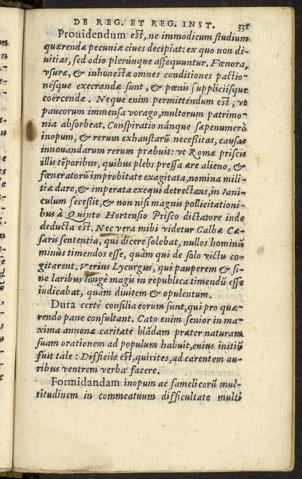 DE REG. ET REG. INST. 331
Prouidendum est, ne immodicum studium
quærendæ pecuniæ eiues decipiat: ex quo non di
uitias, sed odio plerúnque assequuntur. Fœnora,
vsuræ, & inhonestæ omnes conditiones pactio-
nésque execrandæ sunt, & pœnis supplicijsque
coërcendæ. Neque enim permittendum est, vt
paucorum immensa vorago, multorum patrimo-
nia absorbeat. Conspiratio nánque sæpenumerò
inopum, & rerum exhaustarũ necessitas, causas
innouandarum rerum præbuit: vt Romæ priscis
illis tẽporibus, quibus plebs pressa ære alieno, &
fœneratorũ improbitate exagitata, nomina mili-
tiæ dare, & imperata exequi detrectans, in Iani-
culum secessit, & non nisi magnis pollicitationi-
bus à Quinto Hortensio Prisco dictatore inde
deducta est. Nec vera mihi videtur Galbæ Cæ-
saris sententia, qui dicere solebat, nullos hominũ
minùs timendos esse, quàm qui de solo victu co-
gitarent. Verius Lycurgus, qui pauperem & si-
ne laribus longè magis in republica timendũ esse
indicabat, quàm diuitem & opulentum.
Dura certè consilia eorum sunt, qui pro quæ-
rendo pane consultant. Cato enim senior in ma-
xima annonæ caritate blãdam præter naturam
suam orationem ad populum habuit, cuius initiũ
fuit tale: Difficile est, quirites, ad carentem au-
ribus ventrem verba facere.
Formidandam inopum ac famelicorũ mul-
titudinem in commeatuum difficultate multi